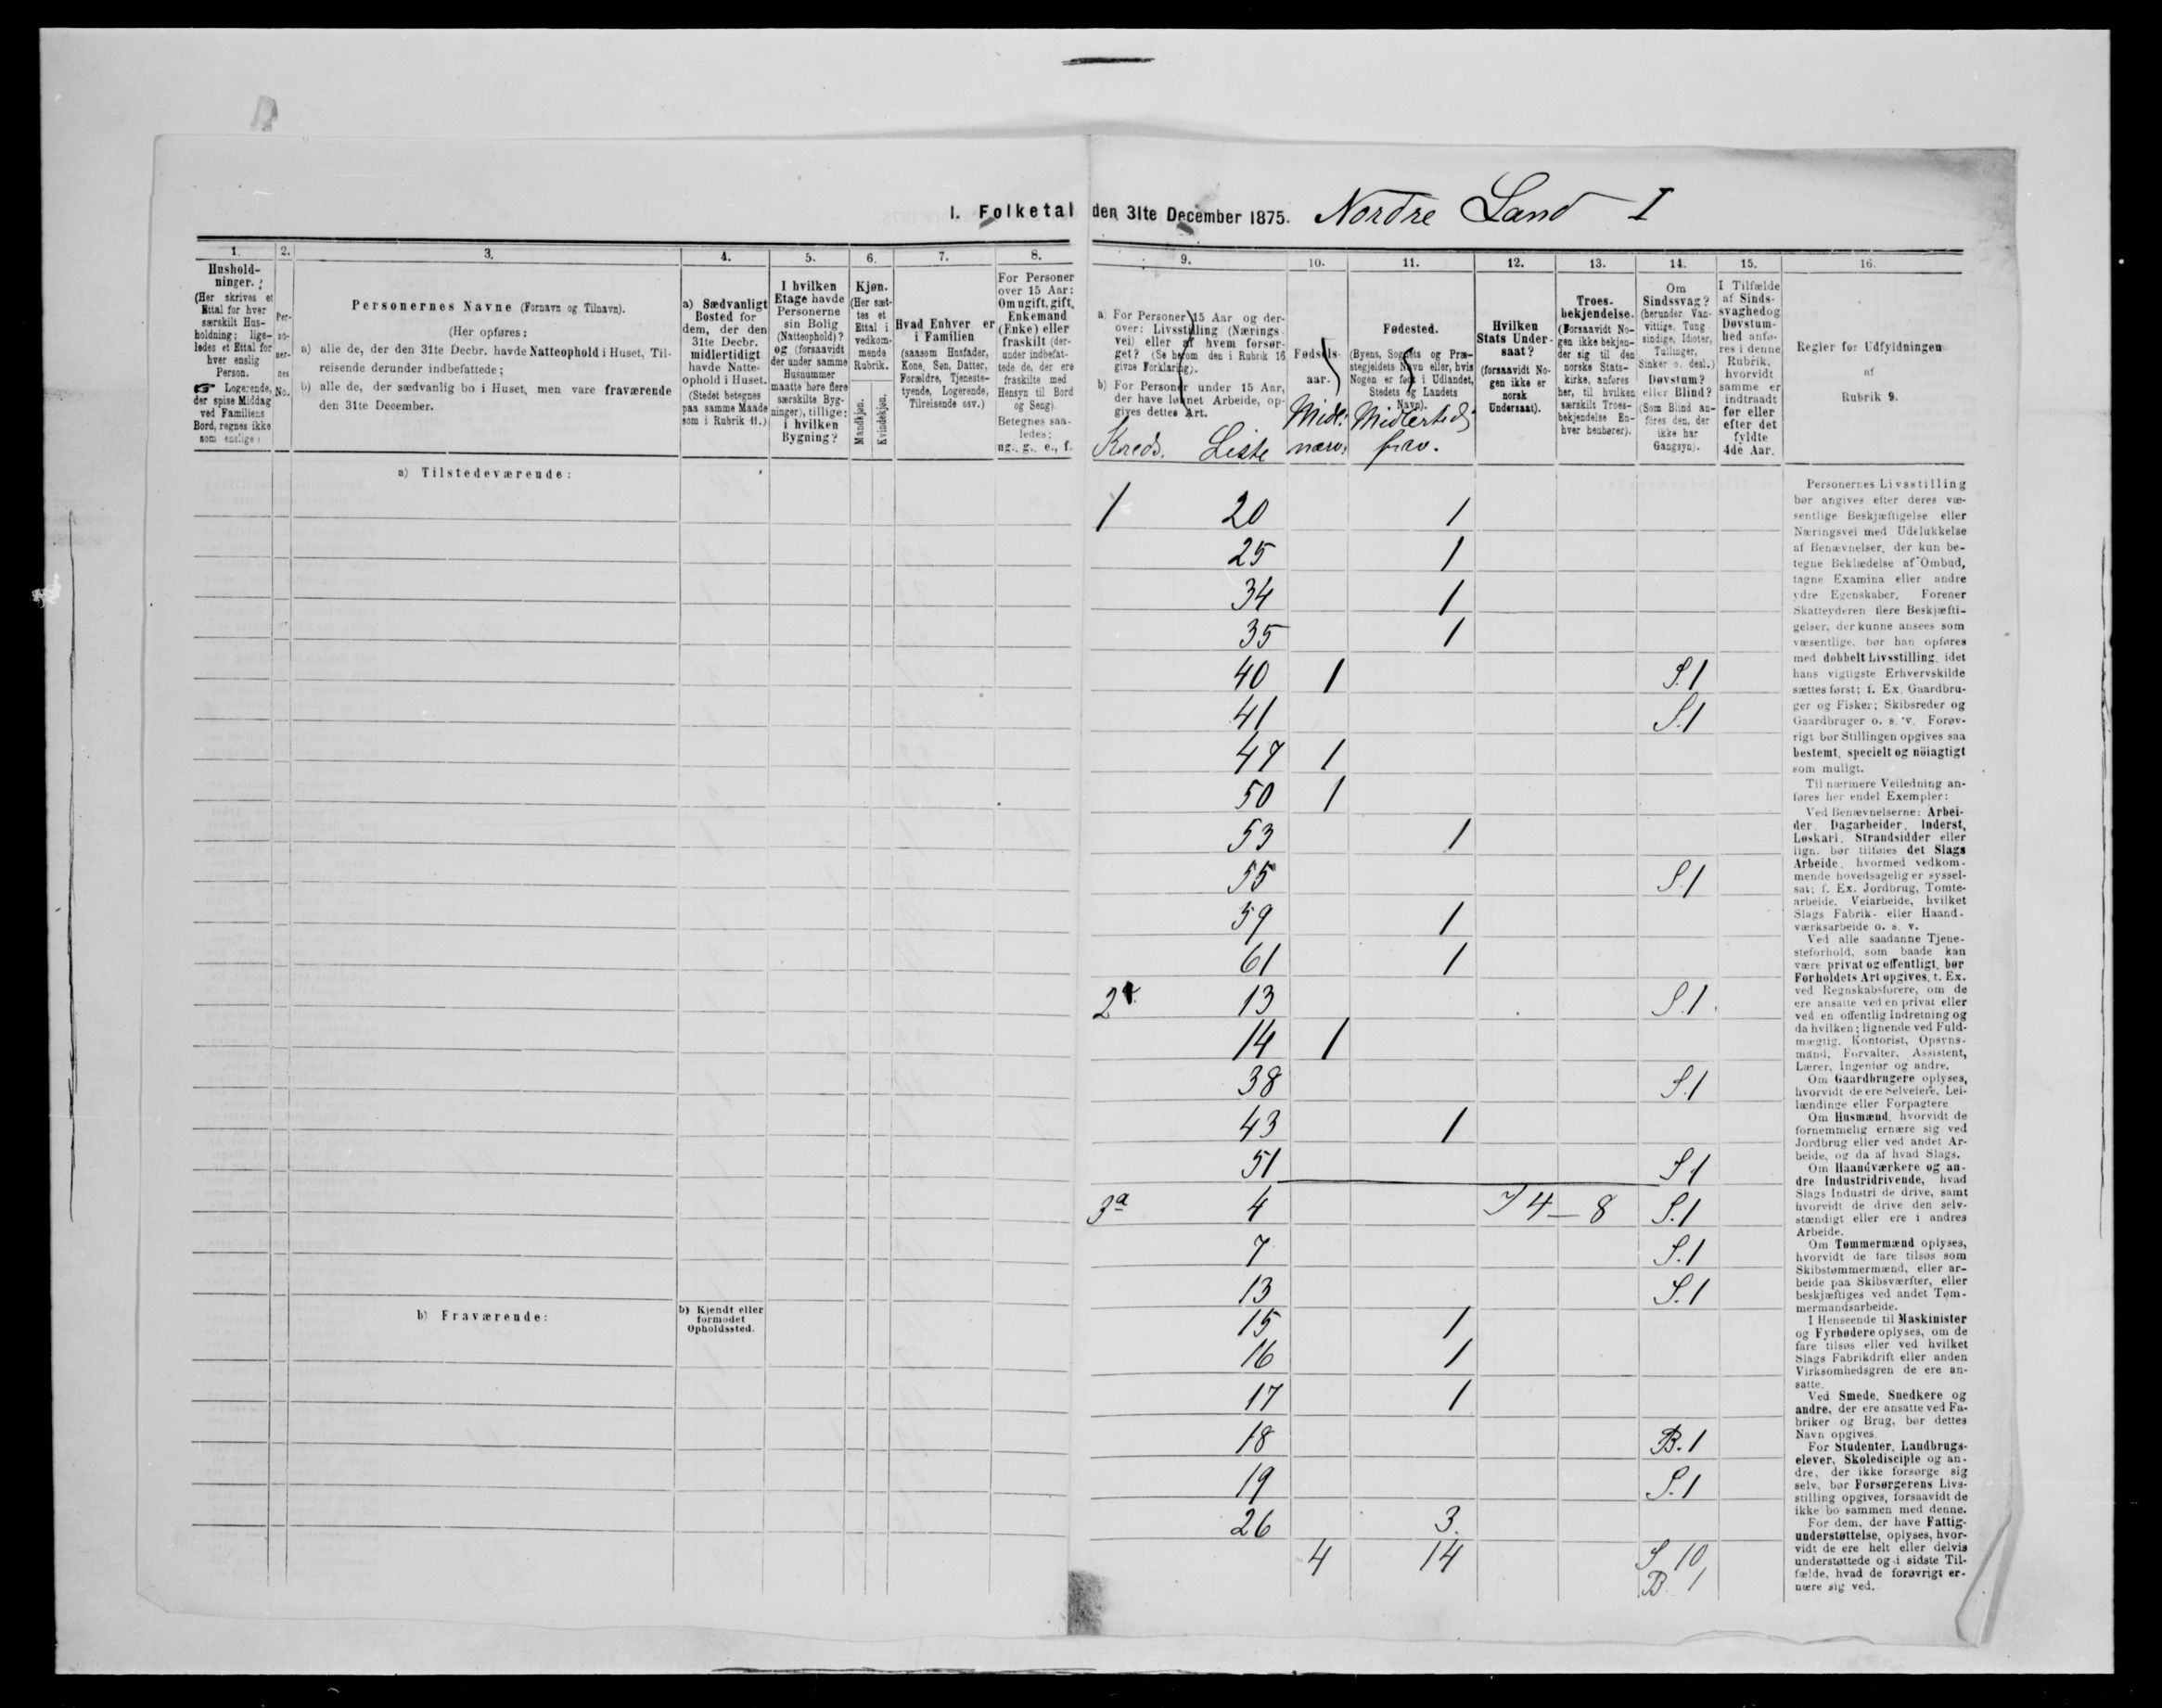 I. Folketal den 31te December 1875. Nordre Land I
1.
Hushold-
ninger.
(Her skrives et
Ettal for hver
særskilt Hus-
holdning; lige-
ledes et Ettal for
hver enslig
Person.
☞ Logerende,
der spise Middag
ved Familiens
Bord, regnes ikke
som enslige)
2.
Per-
so-
ner-
nes
No.
3.
Personernes Navne (Fornavn og Tilnavn).
(Her opføres:
a) alle de, der den 31te Decbr. havde Natteophold i Huset, Til-
reisende derunder indbefattede;
b) alle de, der sædvanlig bo i Huset, men vare fraværende
den 31te December.
4.
a) Sædvanligt
Bosted for
dem, der den
31te Decbr.
midlertidigt
havde Natte-
ophold i Huset.
(Stedet betegnes
paa samme Maade
som i Rubrik 11.)
5.
I hvilken
Etage havde
Personerne
sin Bolig
(Natteophold)?
og (forsaavidt
der under samme
Husnummer
maatte høre flere
særskilte Byg-
ninger), tillige:
i hvilken
Bygning?
6.
Kjøn.
(Her sæt-
tes et
Ettal i
vedkom-
mende
Rubrik.
Mandkjøn.
Kvindekjøn.
7.
Hvad Enhver er
i Familien
(saasom Husfader,
Kone, Søn, Datter,
Forældre, Tjeneste-
tyende, Logerende,
Tilreisende osv.)
8.
For Personer
over 15 Aar:
Om ugift, gift,
Enkemand
(Enke) eller
fraskilt (der-
under indbefat-
tede de, der ere
fraskilte med
Hensyn til Bord
og Seng).
Betegnes saa-
ledes:
ug., g., e., f.
9.
a) For Personer 15 Aar og der-
over: Livsstilling (Nærings-
vei) eller af hvem forsør-
get? (Se herom den i Rubrik 16
givne Forklaring).
b) For Personer under 15 Aar,
der have lønnet Arbeide, op-
gives dettes Art.
Kreds. Liste
10.
Fødsels-
aar.
Midl.
nærv.
11.
Fødested.
(Byens, Sognets og Præ-
stegjeldets Navn eller, hvis
Nogen er født i Udlandet,
Stedets og Landets
Navn).
Midlertid.
frav.
12.
Hvilken
Stats Under-
saat?
(forsaavidt No-
gen ikke er
norsk
Undersaat).
13.
Troes-
bekjendelse.
(Forsaavidt No-
gen ikke bekjen-
der sig til den
norske Stats-
kirke, anføres
her, til hvilken
særskilt Troes-
bekjendelse En-
hver henhører).
14.
Om
Sindssvag?
(herunder Van-
vittige, Tung-
sindige, Idioter,
Tullinger,
Sinker o. desl.)
Døvstum?
eller Blind?
(Som Blind an-
føres den, der
ikke har
Gangsyn).
15.
I Tilfælde
af Sinds-
svaghed og
Døvstum-
hed anfø-
res i denne
Rubrik,
hvorvidt
samme er
indtraadt
før eller
efter det
fyldte
4de Aar.
16.
Regler for Udfyldningen
af
Rubrik 9.
a) Tilstedeværende:
1 20 1
25 1
34 1
35 1
40 1 S.1
41 S.1
47 1
50 1
53 1
55 S.1
59 1
61 1
2 13 S.1.
14 1
38 S.1
43 1
51 S.1
3a 4 4 — 8 S.1
7 S.1
13 S.1
15 1
16 1
17 1
18 B.1
19 S.1
26 3.
4 14 S 10
B. 1
b) Fraværende:
b) Kjendt eller
formodet
Opholdssted.
Personernes Livsstilling
bør angives efter deres væ-
sentlige Beskjæftigelse eller
Næringsvei med Udelukkelse
af Benævnelser, der kun be-
tegne Beklædelse af Ombud,
tagne Examina eller andre
ydre Egenskaber. Forener
Skatteyderen flere Beskjæfti-
gelser, der kunne ansees som
væsentlige, bør han opføres
med dobbelt Livsstilling, idet
hans vigtigste Erhvervskilde
sættes først; f. Ex. Gaardbru-
ger og Fisker; Skibsreder og
Gaardbruger o. s. v. Forøv-
rigt bør Stillingen opgives saa
bestemt, specielt og nöiagtigt
som muligt.
Til nærmere Veiledning an-
føres her endel Exempler:
Ved Benævnelserne: Arbei-
der, Dagarbeider, Inderst,
Løskarl, Strandsidder eller
lign. bør tilføies det Slags
Arbeide, hvormed vedkom-
mende hovedsagelig er syssel-
sat; f. Ex. Jordbrug, Tomte-
arbeide, Veiarbeide, hvilket
Slags Fabrik- eller Haand-
værksarbeide o. s. v.
Ved alle saadanne Tjene-
steforhold, som baade kan
være privat og offentligt, bør
Forholdets Art opgives, f. Ex.
ved Regnskabsførere, om de
ere ansatte ved en privat eller
ved en offentlig Indretning og
da hvilken; lignende ved Fuld-
mægtig, Kontorist, Opsyns-
mand, Forvalter, Assistent,
Lærer, Ingeniør og andre.
Om Gaardbrugere oplyses,
hvorvidt de ere Selveiere, Lei-
lændinge eller Forpagtere
Om Husmænd, hvorvidt de
fornemmelig ernære sig ved
Jordbrug eller ved andet Ar-
beide, og da af hvad Slags.
Om Haandværkere og an-
dre Industridrivende, hvad
Slags Industri de drive, samt
hvorvidt de drive den selv-
stændigt eller ere i andres
Arbeide.
Om Tømmermænd oplyses,
hvorvidt de fare tilsøs som
Skibstømmermænd, eller ar-
beide paa Skibsværfter, eller
beskjæftiges ved andet Tøm-
mermandsarbeide.
I Henseende til Maskinister
og Fyrbødere oplyses, om de
fare tilsøs eller ved hvilket
Slags Fabrikdrift eller anden
Virksomhedsgren de ere an-
satte.
Ved Smede, Snedkere og
andre, der ere ansatte ved Fa-
briker og Brug, bør dettes
Navn opgives.
For Studenter, Landbrugs-
elever, Skoledisciple og an-
dre, der ikke forsørge sig
selv, bør Forsørgerens Livs-
stilling opgives, forsaavidt de
ikke bo sammen med denne.
For dem, der have Fattig-
understøttelse, oplyses, hvor-
vidt de ere helt eller delvis
understøttede og i sidste Til-
fælde, hvad de forøvrigt er-
nære sig ved.